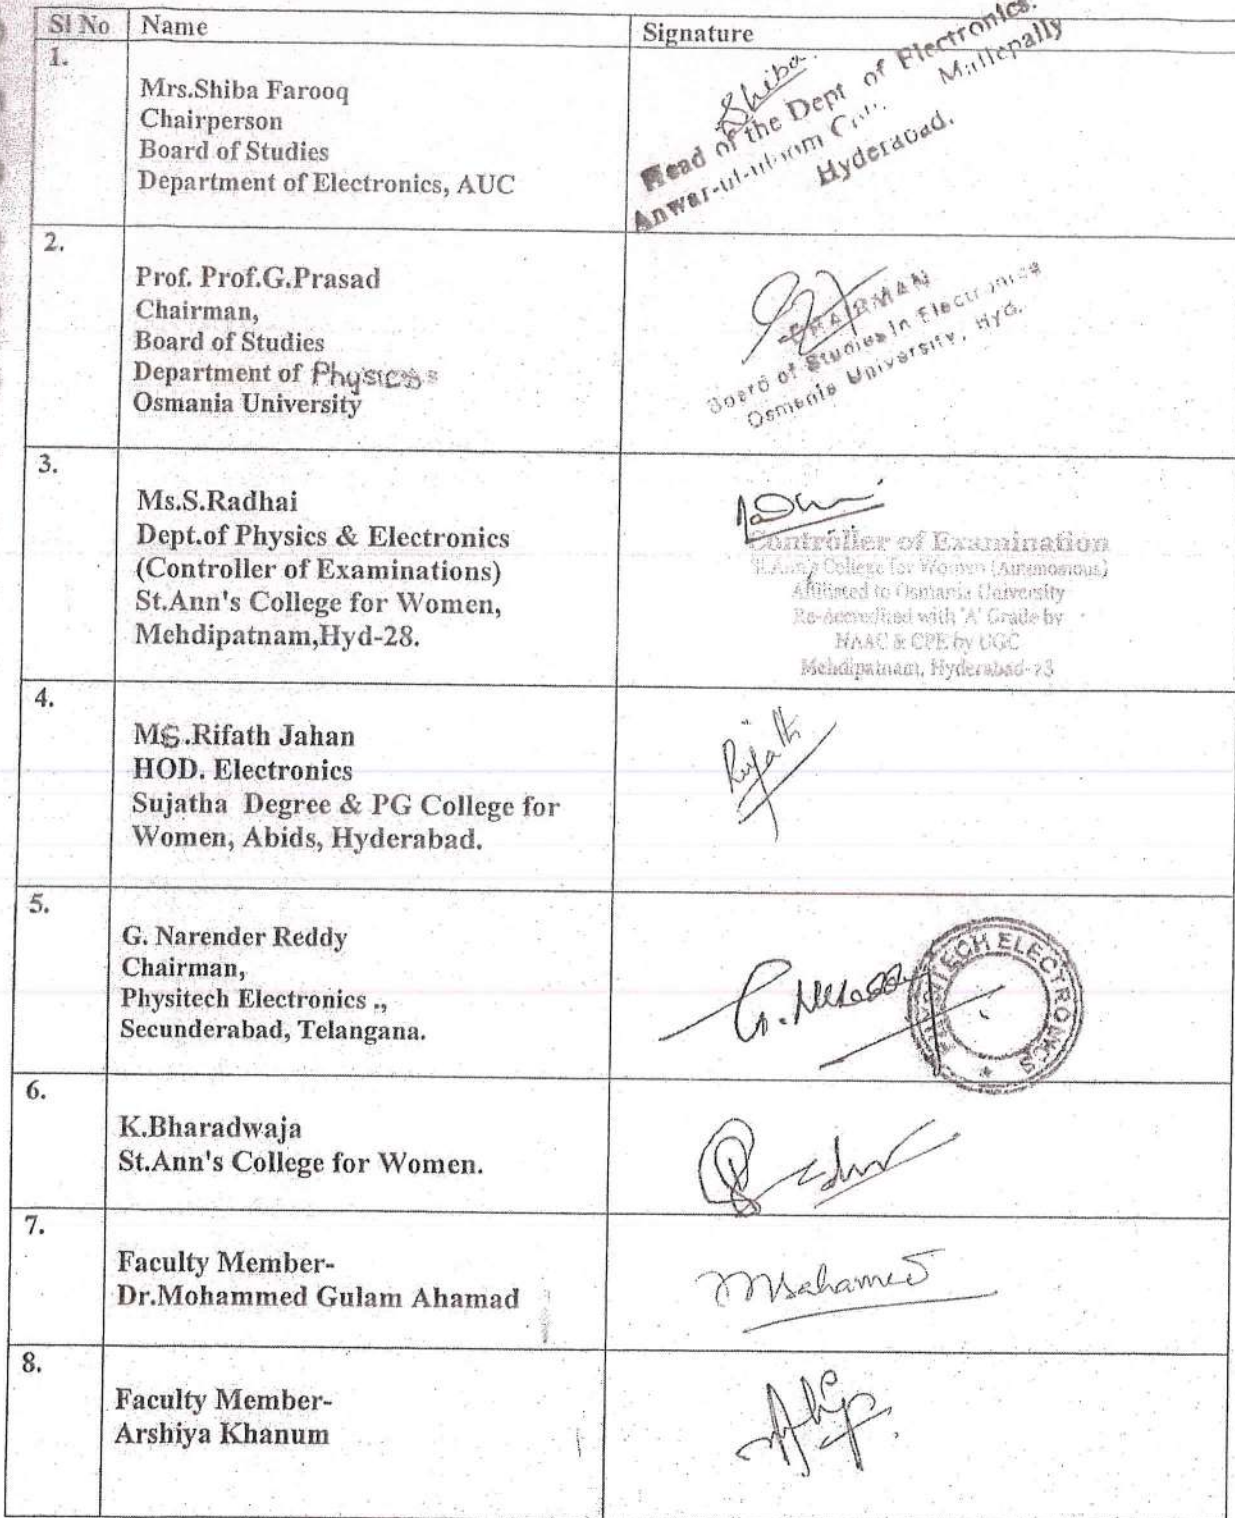 Sl No Name Signature
1.
Mrs.Shiba Farooq
Chairperson
Board of Studies
Department of Electronics, AUC
Shiba
Head of the Dept of Electronics.
Anwar-ul-uloom Mallepally
Hyderabad.
2.
Prof. Prof.G.Prasad
Chairman,
Board of Studies
Department of Physics
Osmania University
CHAIRMAN
Board of Studies in Electronics
Osmania University, Hyd.
3.
Ms.S.Radhai
Dept.of Physics & Electronics
(Controller of Examinations)
St.Ann's College for Women,
Mehdipatnam,Hyd-28.
Controller of Examination
St.Ann's College for Women (Autonomous)
Affiliated to Osmania University
Re-Accredited with 'A' Grade by
NAAC & CPE by UGC
Mehdipatnam, Hyderabad-
4.
MS.Rifath Jahan
HOD. Electronics
Sujatha Degree & PG College for
Women, Abids, Hyderabad.
Rifath
5.
G. Narender Reddy
Chairman,
Physitech Electronics .,
Secunderabad, Telangana.
PHYSITECH ELECTRONICS
6.
K.Bharadwaja
St.Ann's College for Women.
7.
Faculty Member-
Dr.Mohammed Gulam Ahamad
8.
Faculty Member-
Arshiya Khanum